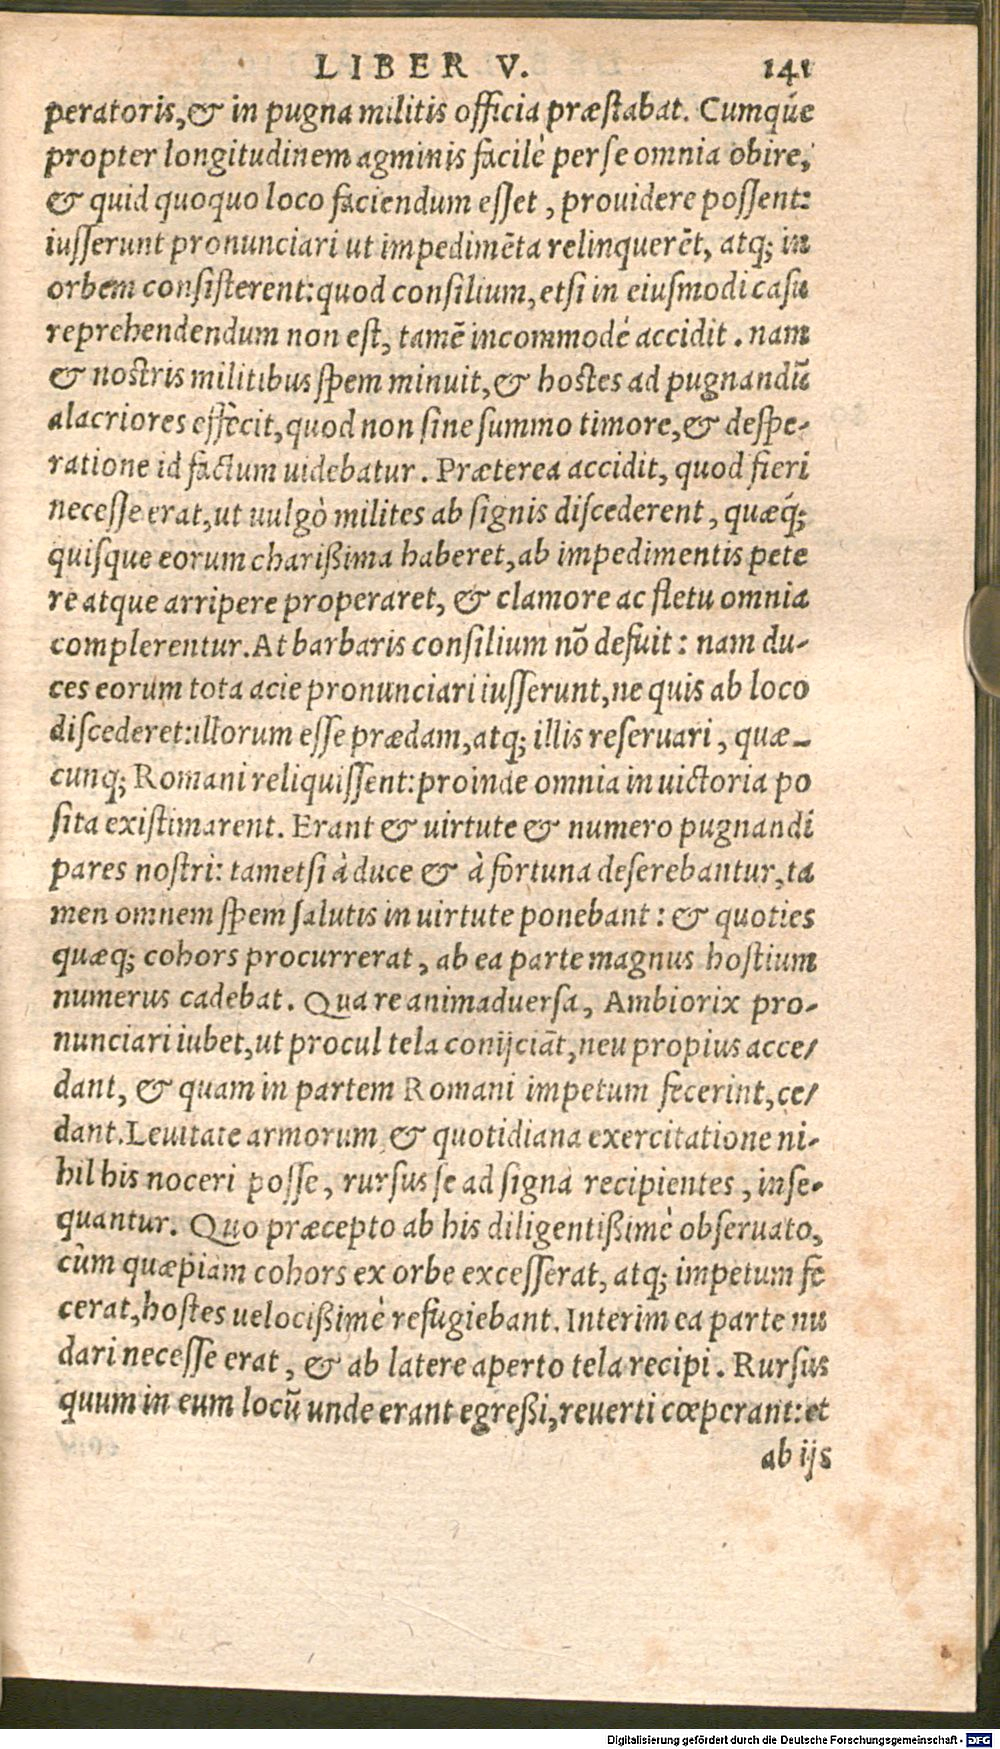 LIBER V. 141
peratoris, & in pugna militis officia præstabat. Cumq́ue
propter longitudinem agminis facilè per se omnia obire,
& quid quoquo loco faciendum esset, prouidere possent:
iusserunt pronunciari ut impedimẽta relinquerẽt, atq; in
orbem consisterent: quod consilium, etsi in eiusmodi casu
reprehendendum non est, tamẽ incommodè accidit. nam
& nostris militibus spem minuit, & hostes ad pugnandũ
alacriores effecit, quod non sine summo timore, & despe-
ratione id factum uidebatur. Præterea accidit, quod fieri
necesse erat, ut uulgò milites ab signis discederent, quæq́;
quisque eorum charißima haberet, ab impedimentis pete
re atque arripere properaret, & clamore ac fletu omnia
complerentur. At barbaris consilium nõ defuit: nam du-
ces eorum tota acie pronunciari iusserunt, ne quis ab loco
discederet: illorum esse prædam, atq; illis reseruari, quæ-
cunq; Romani reliquissent: proinde omnia in uictoria po
sita existimarent. Erant & uirtute & numero pugnandi
pares nostri: tametsi à duce & à fortuna deserebantur, ta
men omnem spem salutis in uirtute ponebant: & quoties
quæq; cohors procurrerat, ab ea parte magnus hostium
numerus cadebat. Qua re animaduersa, Ambiorix pro-
nunciari iubet, ut procul tela conijciãt, neu propius acce/
dant, & quam in partem Romani impetum fecerint, ce/
dant. Leuitate armorum & quotidiana exercitatione ni-
hil his noceri posse, rursus se ad signa recipientes, inse-
quantur. Quo præcepto ab his diligentißimè obseruato,
cùm quæpiam cohors ex orbe excesserat, atq; impetum fe
cerat, hostes uelocißimè refugiebant. Interim ea parte nu
dari necesse erat, & ab latere aperto tela recipi. Rursus
quum in eum locũ unde erant egreßi, reuerti cœperant: et
ab ijs
Digitalisierung gefördert durch die Deutsche Forschungsgemeinschaft - DFG